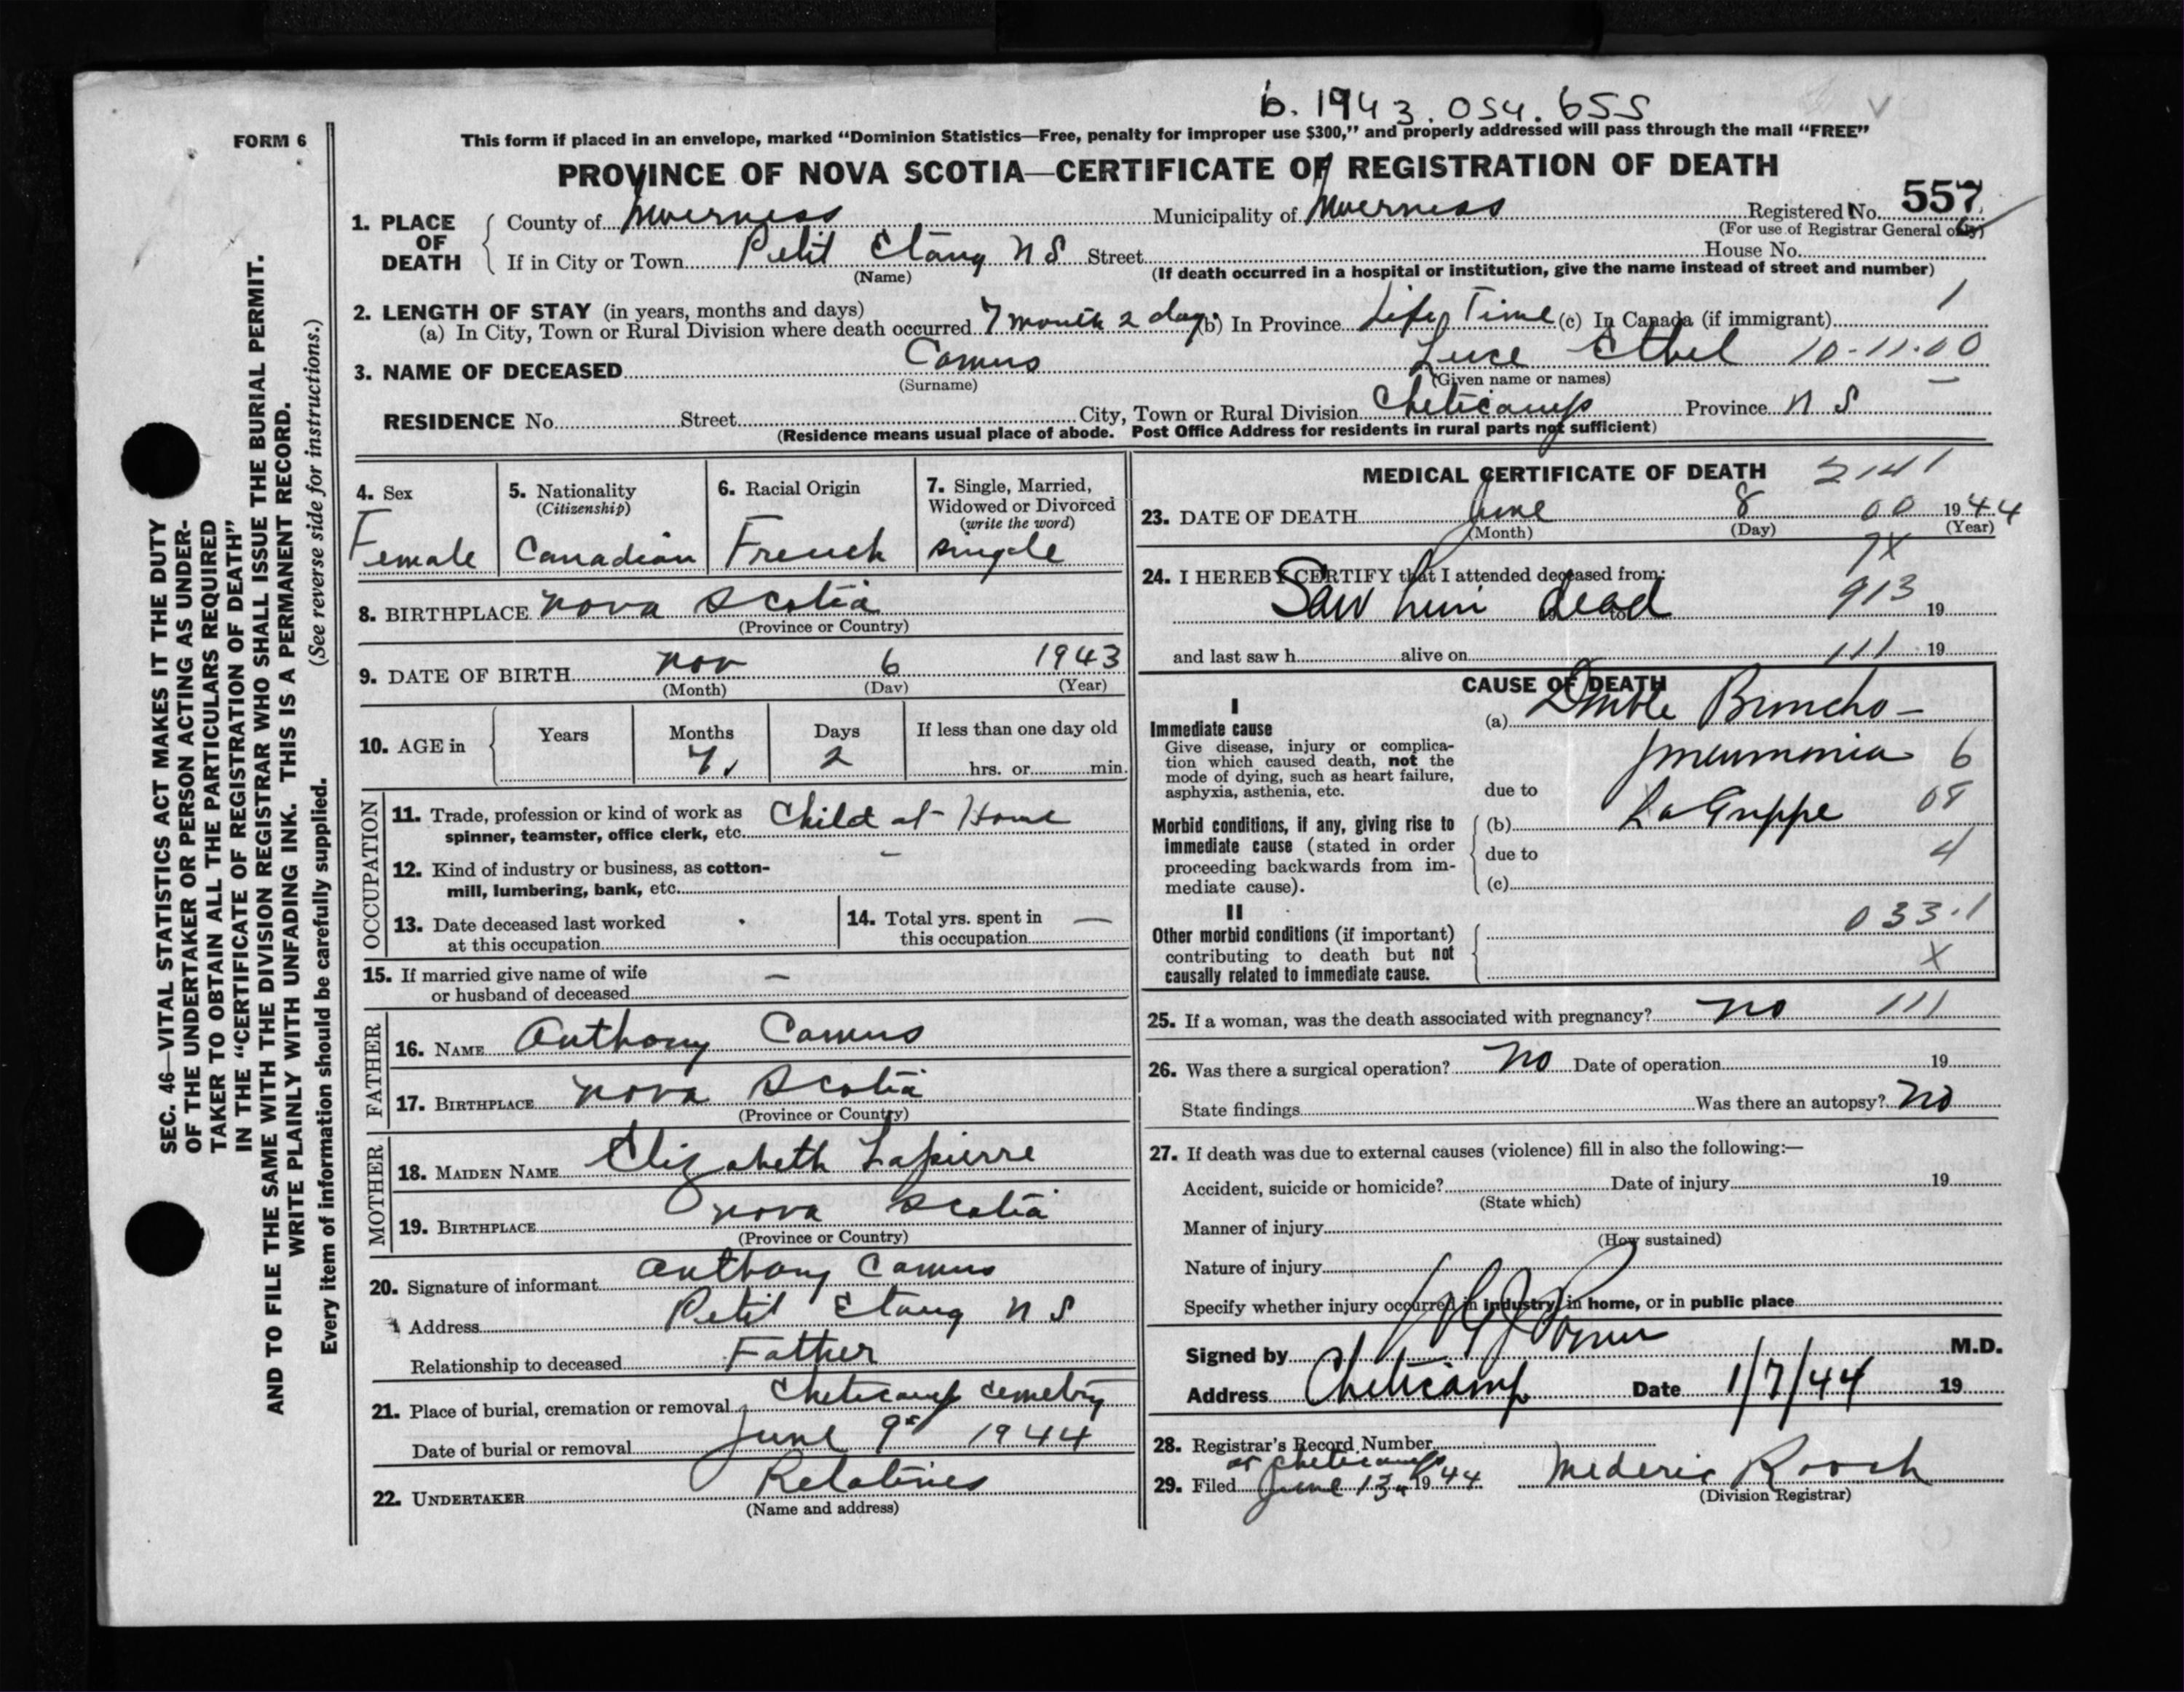 b. 1943. 054. 655
FORM 6
This form if placed in an envelope, marked "Dominion Statistics—Free, penalty for improper use $300," and properly addressed will pass through the mail "FREE"
PROVINCE OF NOVA SCOTIA—CERTIFICATE OF REGISTRATION OF DEATH
1. PLACE OF DEATH County of Inverness Municipality of Inverness Registered No. 557
(For use of Registrar General only)
If in City or Town Petit Etang N S Street House No.
(Name) (If death occurred in a hospital or institution, give the name instead of street and number)
2. LENGTH OF STAY (in years, months and days) 1
(a) In City, Town or Rural Division where death occurred 7 month 2 days (b) In Province Life Time (c) In Canada (if immigrant)
3. NAME OF DECEASED Camus Luce Ethel 10-11-00
(Surname) (Given name or names)
RESIDENCE No. Street City, Town or Rural Division Cheticamp Province N S
(Residence means usual place of abode. Post Office Address for residents in rural parts not sufficient)
4. Sex
Female
5. Nationality
(Citizenship)
Canadian
6. Racial Origin
French
7. Single, Married,
Widowed or Divorced
(write the word)
single
8. BIRTHPLACE Nova Scotia
(Province or Country)
9. DATE OF BIRTH Nov 6 1943
(Month) (Day) (Year)
10. AGE in Years Months Days If less than one day old
7 2 hrs. or min.
OCCUPATION
11. Trade, profession or kind of work as Child at Home
spinner, teamster, office clerk, etc.
12. Kind of industry or business, as cotton- –
mill, lumbering, bank, etc.
13. Date deceased last worked
at this occupation
14. Total yrs. spent in —
this occupation
15. If married give name of wife –
or husband of deceased
FATHER
16. NAME Anthony Camus
17. BIRTHPLACE Nova Scotia
(Province or Country)
MOTHER
18. MAIDEN NAME Elizabeth Lapierre
19. BIRTHPLACE Nova Scotia
(Province or Country)
20. Signature of informant Anthony Camus
Address Petit Etang N S
Relationship to deceased Father
21. Place of burial, cremation or removal Cheticamp cemetry
Date of burial or removal June 9 1944
22. UNDERTAKER Relatives
(Name and address)
MEDICAL CERTIFICATE OF DEATH 2141
23. DATE OF DEATH June 8 00 1944
(Month) (Day) (Year)
7X
24. I HEREBY CERTIFY that I attended deceased from:
Saw him dead to 913 19
and last saw h alive on 111 19
CAUSE OF DEATH
I
Immediate cause
Give disease, injury or complica-
tion which caused death, not the
mode of dying, such as heart failure,
asphyxia, asthenia, etc.
(a) Double Broncho-
pneumonia 6
due to 08
Morbid conditions, if any, giving rise to
immediate cause (stated in order
proceeding backwards from im-
mediate cause).
(b) La Grippe
due to 4
(c)
II
Other morbid conditions (if important)
contributing to death but not
causally related to immediate cause.
033.1
X
25. If a woman, was the death associated with pregnancy? No 111
26. Was there a surgical operation? No Date of operation 19
State findings Was there an autopsy? No
27. If death was due to external causes (violence) fill in also the following:—
Accident, suicide or homicide? Date of injury 19
(State which)
Manner of injury
(How sustained)
Nature of injury
Specify whether injury occurred in industry, in home, or in public place
Signed by M.D.
Address Cheticamp Date 1/7/44 19
28. Registrar's Record Number
at Cheticamp
29. Filed June 13 1944 Mederic Roach
(Division Registrar)
SEC. 46—VITAL STATISTICS ACT MAKES IT THE DUTY
OF THE UNDERTAKER OR PERSON ACTING AS UNDER-
TAKER TO OBTAIN ALL THE PARTICULARS REQUIRED
IN THE "CERTIFICATE OF REGISTRATION OF DEATH"
AND TO FILE THE SAME WITH THE DIVISION REGISTRAR WHO SHALL ISSUE THE BURIAL PERMIT.
WRITE PLAINLY WITH UNFADING INK. THIS IS A PERMANENT RECORD.
Every item of information should be carefully supplied. (See reverse side for instructions.)